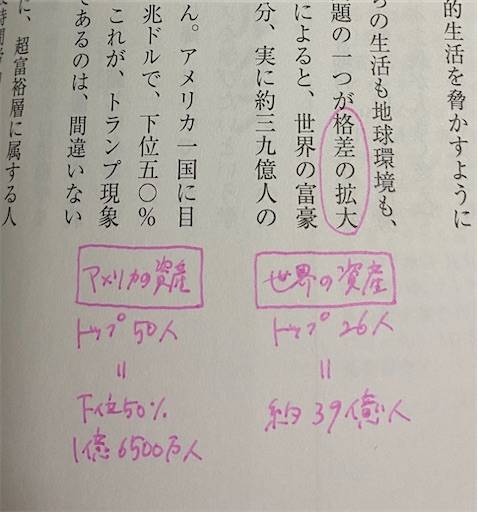 的生活を脅かすように
らの生活も地球環境も、
題の一つが格差の拡大
によると、世界の富豪
分、実に約三九億人の
ん。アメリカ一国に目
兆ドルで、下位五〇%
これが、トランプ現象
であるのは、間違いない
に、超富裕層に属する人
世界の資産
トップ 26人
=
約 39億人
アメリカの資産
トップ 50人
=
下位50%
1億6500万人